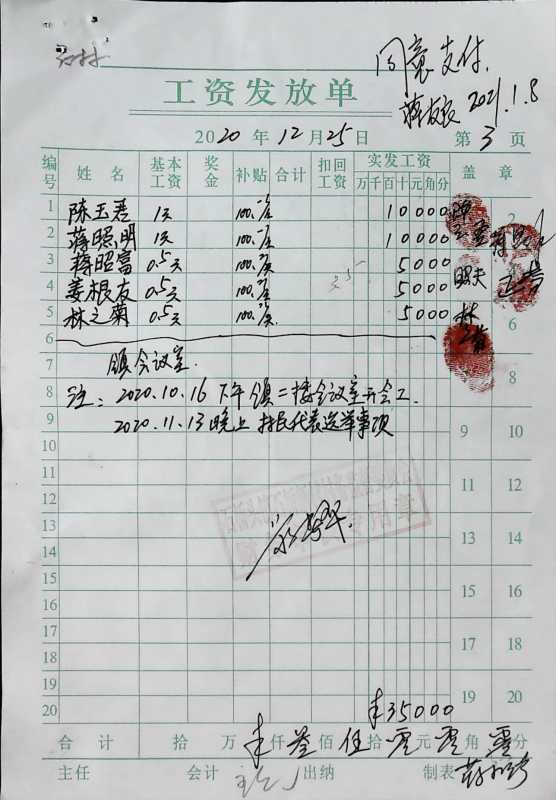 同意支付.
蒋友良 2021.1.8
工资发放单
2020年12月25日 第3页
编号 姓名 基本工资 奖金 补贴 合计 扣回工资 实发工资 盖章
万千百十元角分
1 陈玉善 1天 100.-/天 10000
2 蒋照明 1天 100.-/天 10000 2
3 蒋昭富 0.5天 100.-/天 5000
4 姜根友 0.5天 100.-/天 5000
5 林之菊 0.5天 100.-/天 5000
6 6
7 镇会议室.
8 注: 2020.10.16 下午镇二楼会议室开会工. 8
9 2020.11.13 晚上 村民代表选举事项 9 10
10
11 11 12
12
13 13 14
14
15 15 16
16
17 17 18
18
19 19 20
20 ¥35000
合计 拾 万 仟 叁 佰 伍 拾 零 元 零 角 零 分
主任 会计 出纳 制表